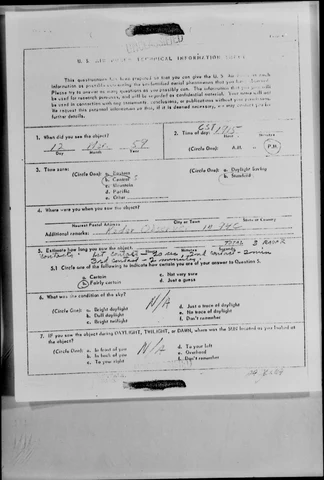 U. S. AIR FORCE TECHNICAL INFORMATION SHEET
This questionnaire has been prepared so that you can give the U. S. Air Force as much
information as possible concerning the unidentified aerial phenomenon that you have observed.
Please try to answer as many questions as you possibly can. The information that you give will
be used for research purposes, and will be regarded as confidential material. Your name will not
be used in connection with any statements, conclusions, or publications without your permission.
We request this personal information so that, if it is deemed necessary, we may contact you for
further details.
1. When did you see the object?
12 Nov 59
Day Month Year
2. Time of day: CST 1915
Hour Minutes
(Circle One): A.M. or P.M.
3. Time zone:
(Circle One): a. Eastern
b. Central
c. Mountain
d. Pacific
e. Other
(Circle One): a. Daylight Saving
b. Standard
4. Where were you when you saw the object?
Nearest Postal Address City or Town State or Country
Additional remarks:
5. Estimate how long you saw the object.
TOTAL 3 RADAR
contacts 1st contact - 20 sec, 2nd contact - 2 min
3rd contact - 2
5.1 Circle one of the following to indicate how certain you are of your answer to Question 5.
a. Certain
b. Fairly certain
c. Not very sure
d. Just a guess
6. What was the condition of the sky?
N/A
(Circle One): a. Bright daylight
b. Dull daylight
c. Bright twilight
d. Just a trace of daylight
e. No trace of daylight
f. Don't remember
7. IF you saw the object during DAYLIGHT, TWILIGHT, or DAWN, where was the SUN located as you looked at
the object?
N/A
(Circle One): a. In front of you
b. In back of you
c. To your right
d. To your left
e. Overhead
f. Don't remember